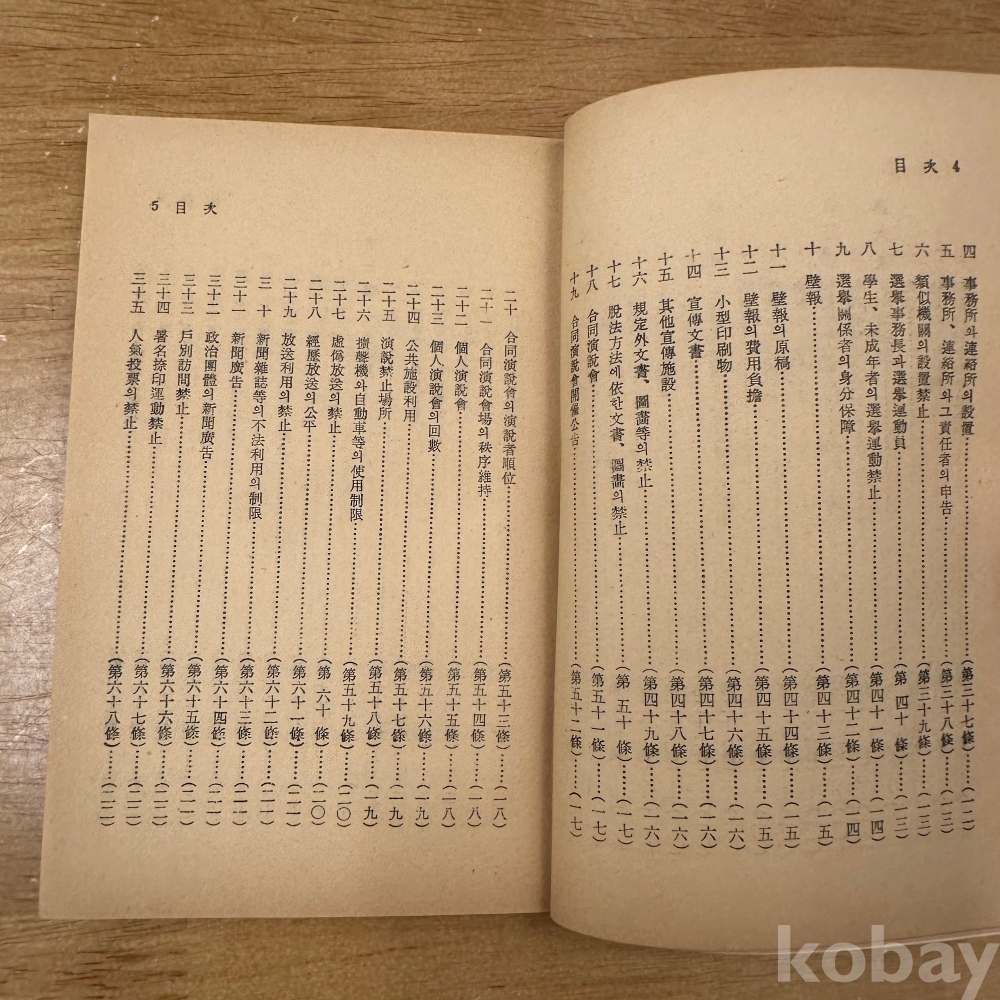 目次 4
四 事務所와 連絡所의 設置……(第三十七條)……(一二)
五 事務所、連絡所와 그 責任者의 申告……(第三十八條)……(一三)
六 類似機關의 設置禁止……(第三十九條)……(一三)
七 選擧事務長과 選擧運動員……(第 四十 條)……(一三)
八 學生、未成年者의 選擧運動禁止……(第四十一條)……(一四)
九 選擧關係者의 身分保障……(第四十二條)……(一四)
十 壁報……(第四十三條)……(一五)
十一 壁報의 原稿……(第四十四條)……(一五)
十二 壁報의 費用負擔……(第四十五條)……(一五)
十三 小型印刷物……(第四十六條)……(一六)
十四 宣傳文書……(第四十七條)……(一六)
十五 其他宣傳施設……(第四十八條)……(一六)
十六 規定外文書、圖畵等의 禁止……(第四十九條)……(一六)
十七 脫法方法에 依한 文書、圖畵의 禁止……(第 五十 條)……(一七)
十八 合同演說會……(第五十一條)……(一七)
十九 合同演說會開催公告……(第五十二條)……(一七)
5 目次
二十 合同演說會의 演說者順位……(第五十三條)……(一八)
二十一 合同演說會場의 秩序維持……(第五十四條)……(一八)
二十二 個人演說會……(第五十五條)……(一八)
二十三 個人演說會의 回數……(第五十六條)……(一九)
二十四 公共施設利用……(第五十七條)……(一九)
二十五 演說禁止場所……(第五十八條)……(一九)
二十六 擴聲機와 自動車等의 使用制限……(第五十九條)……(二〇)
二十七 虛僞放送의 禁止……(第 六十 條)……(二〇)
二十八 經歷放送의 公平……(第六十一條)……(二一)
二十九 放送利用의 禁止……(第六十二條)……(二一)
三 十 新聞雜誌等의 不法利用의 制限……(第六十三條)……(二一)
三十一 新聞廣告……(第六十四條)……(二一)
三十二 政治團體의 新聞廣告……(第六十五條)……(二二)
三十三 戶別訪問禁止……(第六十六條)……(二二)
三十四 署名捺印運動禁止……(第六十七條)……(二二)
三十五 人氣投票의 禁止……(第六十八條)……(二二)
kobay